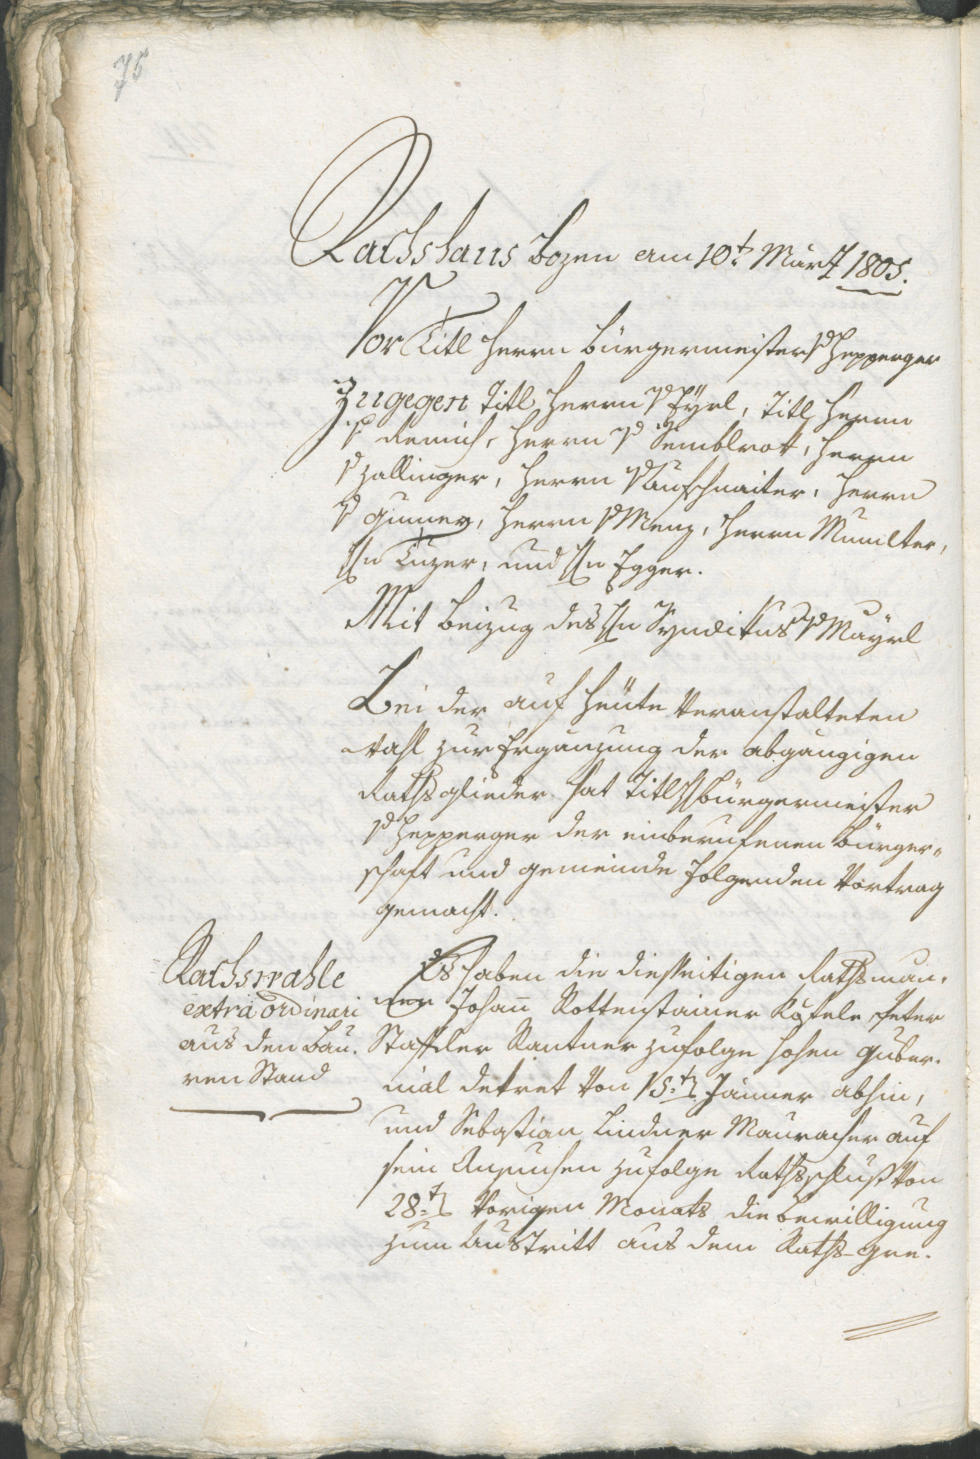 75
Rathshaus Bozen am 10t. März 1805.
Vor Titl Herrn Bürgermeister v Hepperger
Zugegen Titl Herrn v Eÿrl, Titl Herrn
v Remich, Herrn v Semblrok, Herrn
v Zallinger, Herrn v Aufschnaiter, Herrn
v Gumer, Herrn v Menz, Herrn Mumlter,
Hn Tuzer, und Hn Egger.
Mit Beizug des Hn Syndikus v Mayrl
Bei der auf heute veranstalteten
Wahl zur Ergänzung der abgängigen
Rathsglieder hat Titl H Bürgermeister
v Hepperger der einberufenen Bürger=
schaft und Gemeinde folgenden Vortrag
gemacht.
Rathswahle
extra ordinari
aus den Bau.
ren Stand
Es haben die diesseitigen Rathsmän.
ner Johan̅ Rottensteiner Kofele, Peter
Staffler Rantner zufolge hohen Guber.
nial Dekret von 15.t Jänner abhin,
und Sebastian Lindner Mauracher auf
sein Ansuchen zufolge Rathsschluß von
28.t vorigen Monats die Bewilligung
zum Austritt aus dem Raths-Gre.